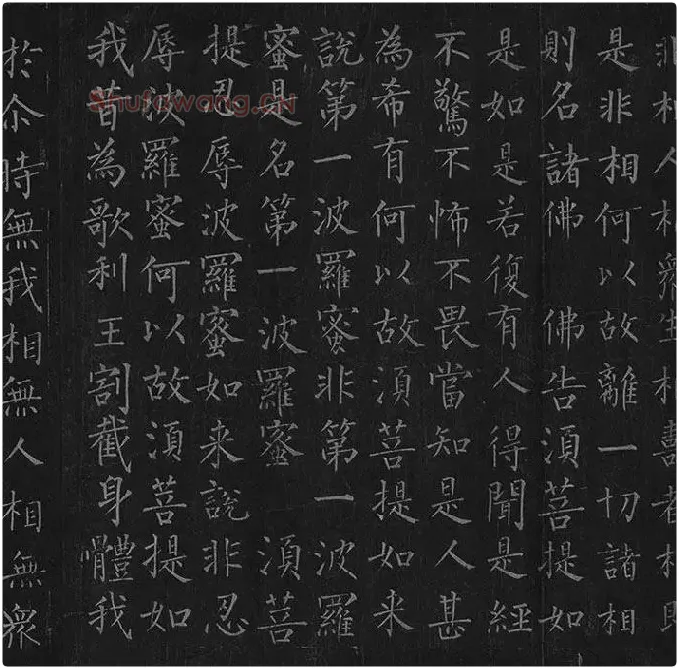 非相人相衆生相壽者相即
是非相何以故離一切諸相
則名諸佛 佛告須菩提如
是如是若復有人得聞是經
不驚不怖不畏當知是人甚
為希有何以故須菩提如来
說第一波羅蜜非第一波羅
蜜是名第一波羅蜜 須菩
提忍辱波羅蜜如来說非忍
辱波羅蜜何以故須菩提如
我昔為歌利王割截身體我
於尒時無我相無人相無衆
Shufawang.cn